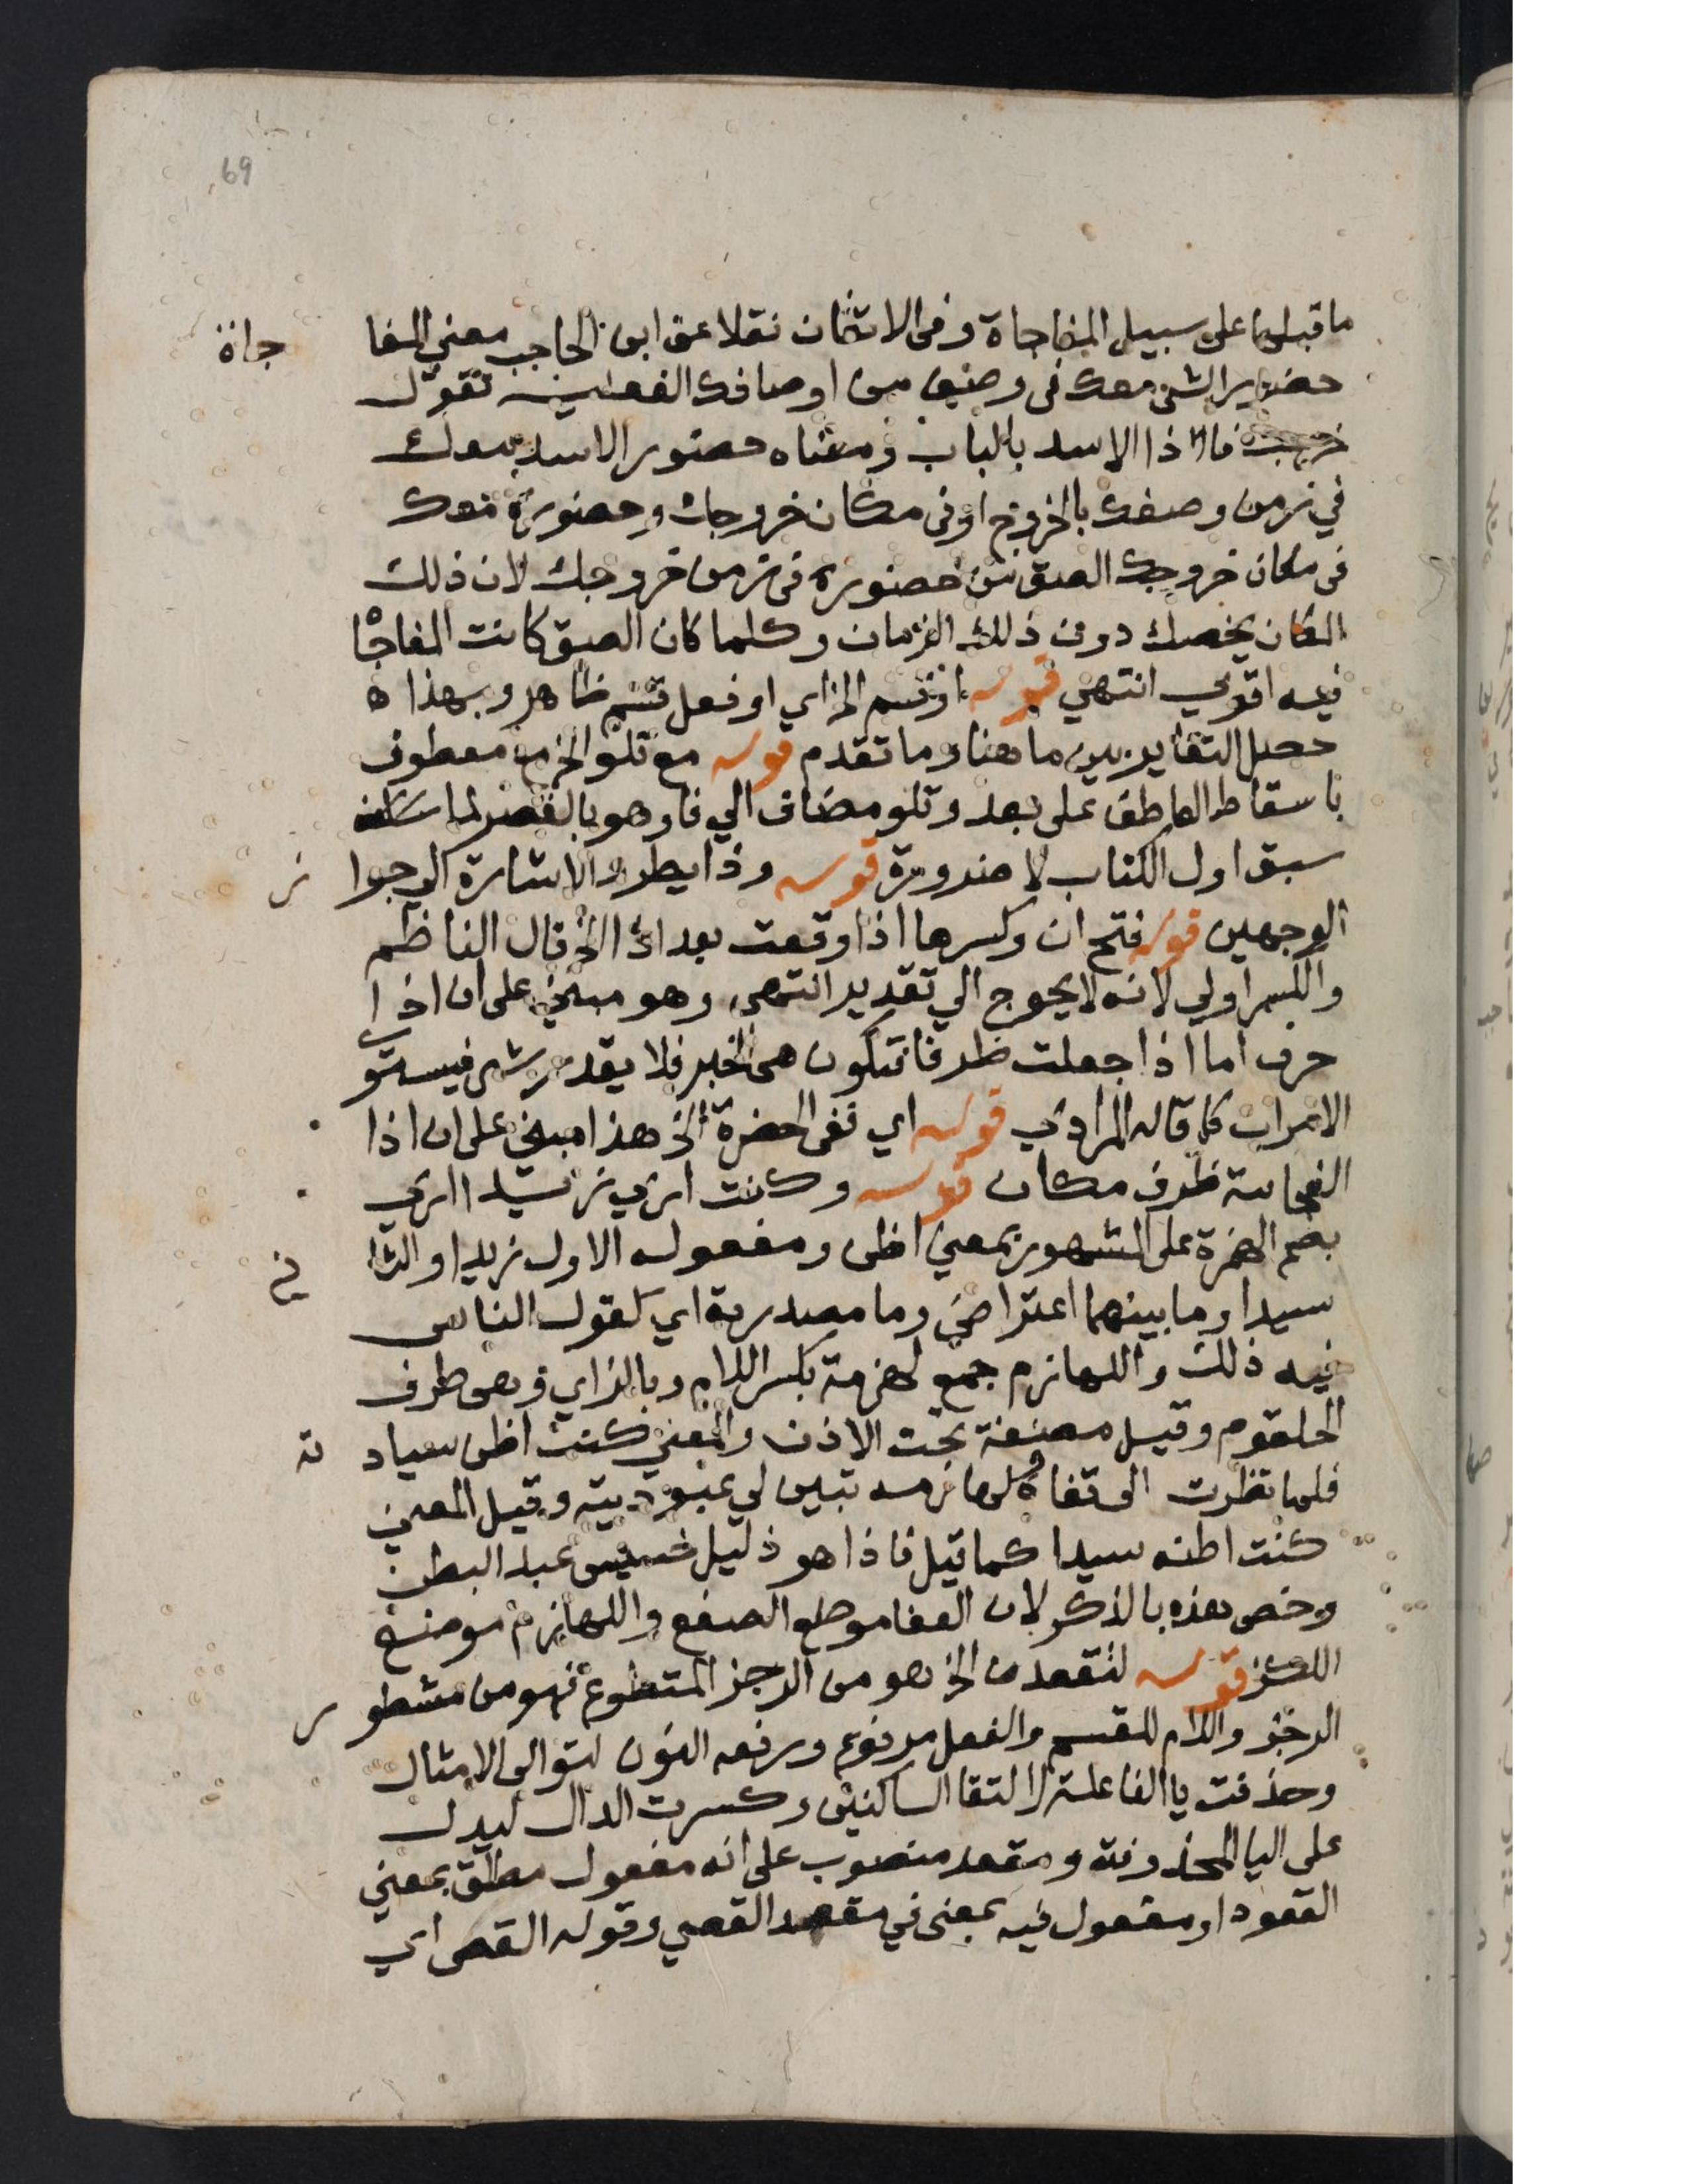 69
ما قبلها على سبيل المفاجاة وفى الاتقان نقلا عن ابن الحاجب معني المفا جاة
حضور الشي معك فى وصف من اوصافك الفعلية تقول
خرجت فاذا الاسد بالباب ومعناه حضور الاسد معك
في زمن وصفك بالخروج او فى مكان خروجك وحضوره معك
فى مكان خروجك الصق من حضوره فى زمن خروجك لان ذلك
المكان يخصك دون ذلك الزمان وكلما كان الصق كانت المفاجا
فيه اقوي انتهي قوله او قسم الخ اي او فعل قسم ظاهر وبهذا ه
حصل التغاير بين ما هنا وما تقدم قوله مع تلو الخ مع معطوف
باسقاط العاطف على بعد وتلو مضاف الي فا وهو بالقصر لما
سبق اول الكتاب لا ضرورة قوله وذا يطرد الاشارة الي جوا ز
الوجهين قوله فتح ان وكسرها اذا وقعت بعد اذا الخ قال الناظم
والكسر اولي لانه لا يحوج الي تقدير انتهى وهو مبني على ان اذا
حرف اما اذا جعلت ظرفا فتكون هى الخبر فلا يقدر شى فيستو
الامران كما قاله المرادي قوله اي ففى الحضرة الخ هذا مبني على ان اذا
الفجائية ظرف مكان قوله وكنت اري زيدا اري
بضم الهمزة على المشهور بمعني اظن ومفعوله الاول زيدا والثا ني
سيدا وما بينهما اعتراض وما مصدرية اي كقول الناس
فيه ذلك واللهازم جمع لهزمة بكسر اللام وبالزاي وهى طرف
الحلقوم وقيل مضغة تحت الاذن والمعني كنت اظن سياد ته
فلما نظرت الى قفاه ولهازمه تبين لي عبوديته وقيل المعني
كنت اظنه سيدا كما قيل فاذا هو ذليل خسيس عبد البطن
وخص هذه بالذكر لان القفا موضع الصفع واللهازم موضع
اللكز قوله لتقعدن الخ هو من الرجز المقطوع فهو من مشطو ر
الرجز واللام للقسم والفعل مرفوع ورفعه النون لتوالى الامثال
وحذفت يا الفاعلة لالتقا الساكنين وكسرت الدال ليدل
على اليا المحذوفة ومقعد منصوب على انه مفعول مطلق بمعني
القعود او مفعول فيه بمعنى في مقعد القصي وقوله القصى اي